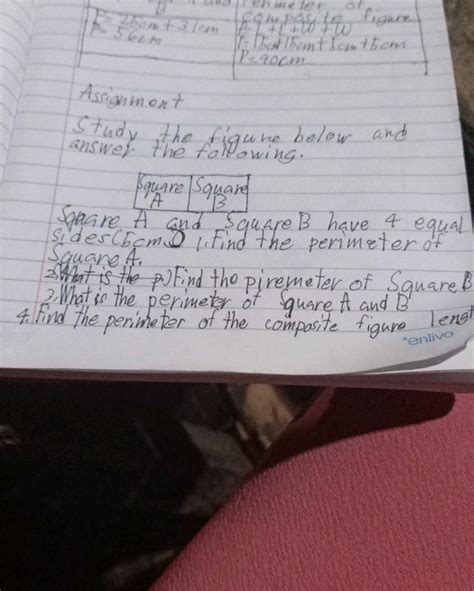 P= 25cm + 31cm
P= 56cm
composite figure
P=90cm
Assignment
Study the figure below and
answer the following.
Square Square
A B
Square A and Square B have 4 equal
sides(5cm) 1. Find the perimeter of
Square A.
Find the piremeter of Square B
2. What is the perimeter of quare A and B
4. Find the perimeter of the composite figure lengt
enlivo